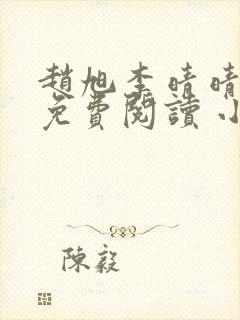 趙旭李晴晴
免費閱讀小
陳毅